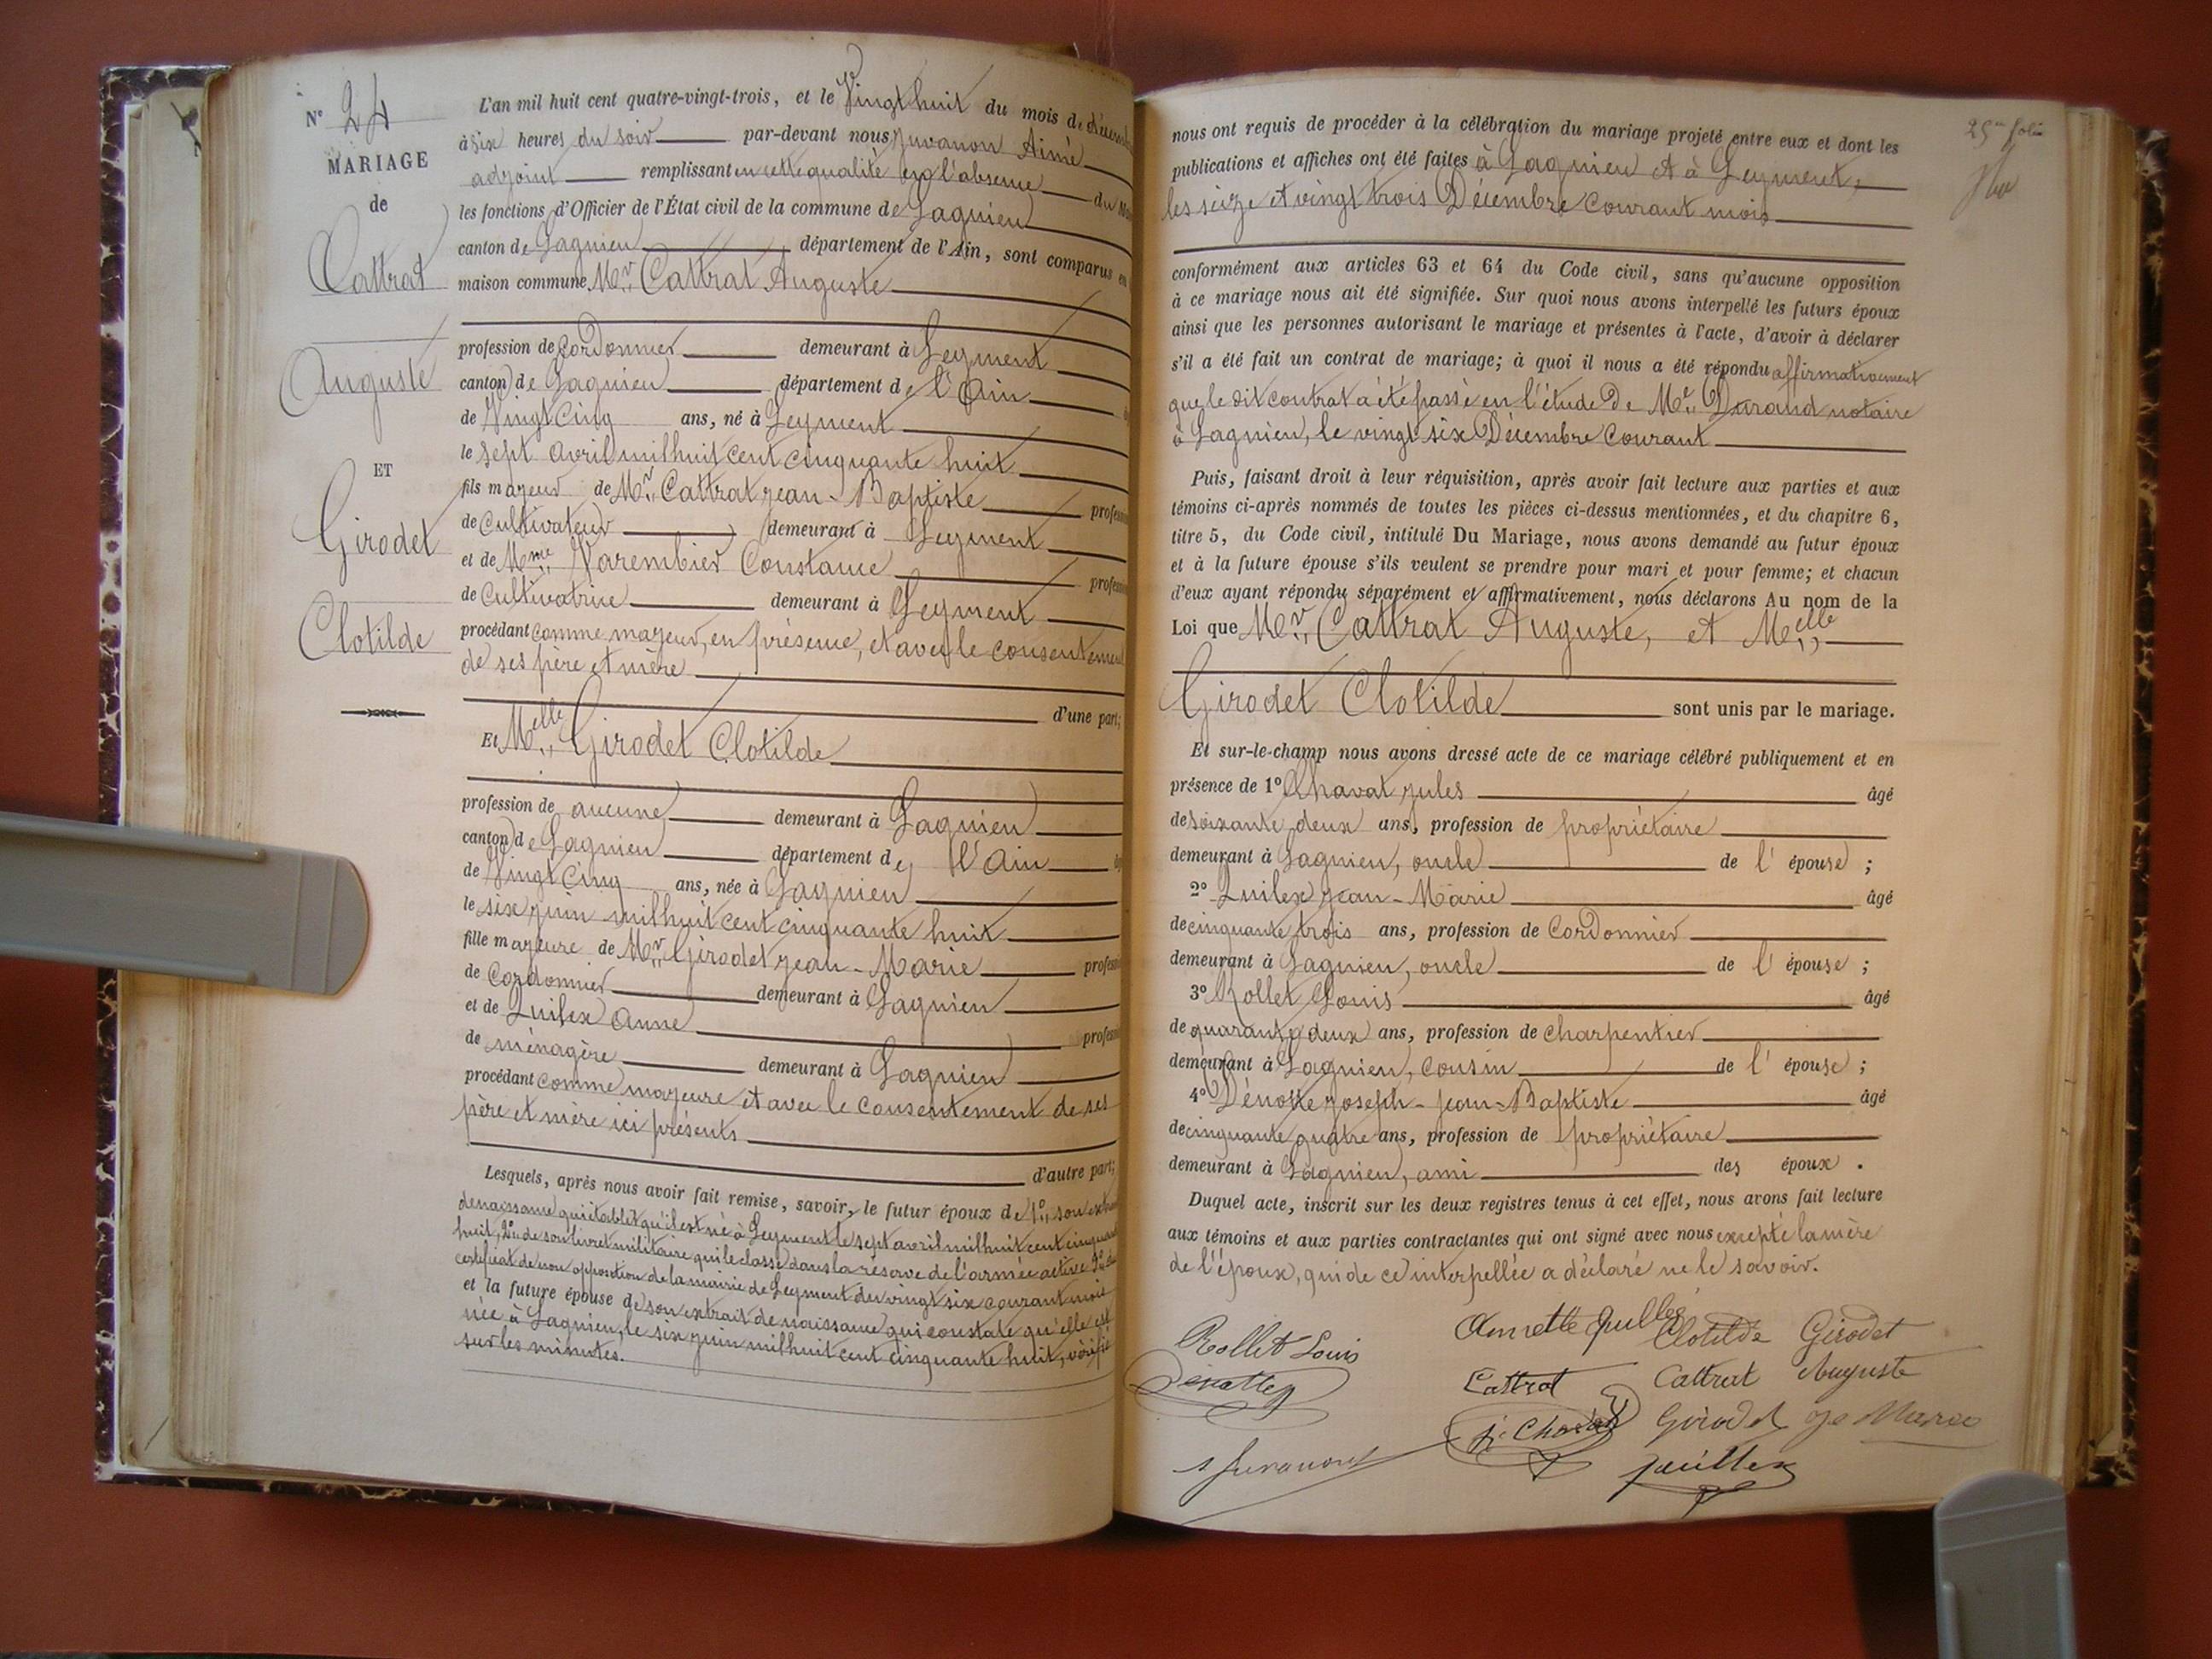 N° 24
MARIAGE
de
Cattrat
Auguste
ET
Girodet
Clotilde
L'an mil huit cent quatre-vingt-trois, et le Vingt huit du mois de
à six heures du soir par-devant nous Juvanon Aimé
adjoint remplissant en cette qualité en l'absence du
les fonctions d'Officier de l'État civil de la commune de Lagnieu
canton de Lagnieu département de l'Ain, sont comparus en
maison commune Mr. Cattrat Auguste
profession de Cordonnier demeurant à Leyment
canton de Lagnieu département de l'Ain
de Vingt Cinq ans, né à Leyment
le sept avril mil huit cent cinquante huit
fils majeur de Mr. Cattrat jean-Baptiste
de Cultivateur demeurant à Leyment
et de Mme. Varembier Constance
de Cultivatrice demeurant à Leyment
procédant comme majeur, en présence, et avec le consentement
de ses père et mère
d'une part;
Et Melle. Girodet Clotilde
profession de aucune demeurant à Lagnieu
canton de Lagnieu département de l'Ain
de Vingt Cinq ans, née à Lagnieu
le six juin mil huit cent cinquante huit
fille majeure de Mr. Girodet jean-Marie
de Cordonnier demeurant à Lagnieu
et de Quilex Anne
de ménagère demeurant à Lagnieu
procédant comme majeure et avec le consentement de ses
père et mère ici présents
d'autre part;
Lesquels, après nous avoir fait remise, savoir, le futur époux de 1° son
de naissance qui établit qu'il est né à Leyment le sept avril mil huit cent cinquante
huit, 2° de son livret militaire qui le classe dans la réserve de l'armée active
certificat de non opposition de la mairie de Leyment du vingt six courant mois
et la future épouse de son extrait de naissance qui constate qu'elle est
née à Lagnieu, le six juin mil huit cent cinquante huit, vérifié
sur les minutes.
25me folio
nous ont requis de procéder à la célébration du mariage projeté entre eux et dont les
publications et affiches ont été faites à Lagnieu et à Leyment,
les seize et vingt trois Décembre courant mois
conformément aux articles 63 et 64 du Code civil, sans qu'aucune opposition
à ce mariage nous ait été signifiée. Sur quoi nous avons interpellé les futurs époux
ainsi que les personnes autorisant le mariage et présentes à l'acte, d'avoir à déclarer
s'il a été fait un contrat de mariage; à quoi il nous a été répondu affirmativement
que le dit contrat a été passé en l'étude de Me. Durand notaire
à Lagnieu, le vingt six Décembre Courant
Puis, faisant droit à leur réquisition, après avoir fait lecture aux parties et aux
témoins ci-après nommés de toutes les pièces ci-dessus mentionnées, et du chapitre 6,
titre 5, du Code civil, intitulé Du Mariage, nous avons demandé au futur époux
et à la future épouse s'ils veulent se prendre pour mari et pour femme; et chacun
d'eux ayant répondu séparément et affirmativement, nous déclarons Au nom de la
Loi que Mr. Cattrat Auguste, et Melle.
Girodet Clotilde sont unis par le mariage.
Et sur-le-champ nous avons dressé acte de ce mariage célébré publiquement et en
présence de 1° Chavat jules âgé
de soixante deux ans, profession de propriétaire
demeurant à Lagnieu, oncle de l'épouse ;
2° Quilex jean-Marie âgé
de cinquante trois ans, profession de Cordonnier
demeurant à Lagnieu, oncle de l'épouse ;
3° Rollet Louis âgé
de quarante deux ans, profession de charpentier
demeurant à Lagnieu, cousin de l'épouse ;
4° joseph-jean-Baptiste âgé
de cinquante quatre ans, profession de propriétaire
demeurant à Lagnieu, ami des époux.
Duquel acte, inscrit sur les deux registres tenus à cet effet, nous avons fait lecture
aux témoins et aux parties contractantes qui ont signé avec nous excepté la mère
de l'époux, qui de ce interpellée a déclaré ne le savoir.
Rollet Louis
Clotilde Girodet
Cattrat
Cattrat Auguste
Girodet